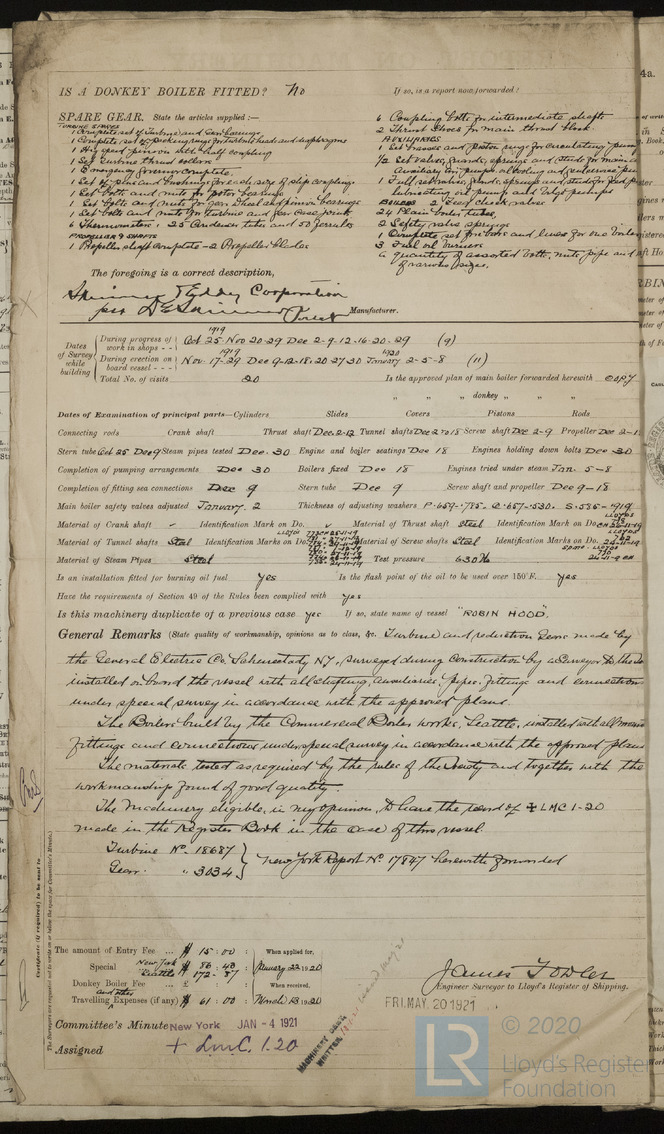 IS A DONKEY BOILER FITTED? No If so, is a report now forwarded?
SPARE GEAR. State the articles supplied :—
TURBINE SPARES
1 Complete set of Turbine and Gear bearings
1 Complete set of packing rings for turbine heads and diaphragms
1 High speed pinion with half coupling
1 Set Turbine thrust collars
1 Emergency Governor complete.
1 Set of pins and bushings for each size of slip couplings
1 Set bolts and nuts for rotor bearings
1 Set bolts and nuts for Gear Wheel and pinion bearings
1 Set bolts and nuts for Turbine and Gear Case joints
6 Thermometers, 25 Condenser tubes and 50 ferrules
PROPELLER & SHAFTS
1 Propeller shaft complete - 2 Propeller blades
6 Coupling bolts for intermediate shaft
2 Thrust Shoes for main thrust block.
AUXILIARIES
1 Set valves, guards, springs and studs for
BOILERS 2 Feed check valves
24 Plain boiler tubes
2 Safety valve springs
1 Complete set fire bars and for one boiler
3 Fuel oil burners
a quantity of assorted bolts, nuts pipe and
of various sizes.
The foregoing is a correct description,
Skinner & Eddy Corporation
per D E Skinner Prest Manufacturer.
Dates of Survey while building
During progress of work in shops - - 1919 Oct 25 Nov 20-29 Dec 2-9-12-16-20-29 (9)
During erection on board vessel - - - 1919 Nov. 17-29 Dec 9-12-18-20 27 30 January 1920 2-5-8 (11)
Total No. of visits 20 Is the approved plan of main boiler forwarded herewith COPY
„ „ „ donkey „ „ „
Dates of Examination of principal parts—Cylinders Slides Covers Pistons Rods
Connecting rods Crank shaft Thrust shaft Dec. 2-12 Tunnel shafts Dec 2 to 18 Screw shaft Dec 2-9 Propeller Dec 2-1
Stern tube Oct 25 Dec 9 Steam pipes tested Dec. 30 Engine and boiler seatings Dec 18 Engines holding down bolts Dec 30
Completion of pumping arrangements Dec 30 Boilers fixed Dec 18 Engines tried under steam Jan. 5-8
Completion of fitting sea connections Dec 9 Stern tube Dec 9 Screw shaft and propeller Dec 9-18
Main boiler safety valves adjusted January. 2 Thickness of adjusting washers P.659-.785- C.657-.530. S.585-.1919
Material of Crank shaft ✓ Identification Mark on Do. ✓ Material of Thrust shaft Steel Identification Mark on Do. LLOYDS
Material of Tunnel shafts Steel Identification Marks on Do. LLOYDS Material of Screw shafts Steel Identification Marks on Do. LLOYDS
Material of Steam Pipes Steel Test pressure 630 SPARE - LLOYDS
Is an installation fitted for burning oil fuel yes Is the flash point of the oil to be used over 150°F. yes
Have the requirements of Section 49 of the Rules been complied with yes
Is this machinery duplicate of a previous case yes If so, state name of vessel "ROBIN HOOD",
General Remarks (State quality of workmanship, opinions as to class, &c. Turbine and reduction Gear made by
the General Electric Co, Schenectady N.Y., surveyed during Construction by a Surveyor to the
installed on board the vessel with all shafting, auxiliaries, pipes, fittings and connections
under special survey in accordance with the approved plans.
The Boilers built by the Commercial Boiler works, Seattle, installed with all
fittings and connections under special survey in accordance with the approved plans
The materials tested as required by the rules of the Society and together with the
workmanship found of good quality.
The Machinery eligible, in my opinion, to have the record of ✠ LMC 1-20
made in the Register Book in the case of this vessel.
Turbine No. 18687
Gear „ 3034
New York Report No 17847 herewith forwarded
Certificate (if required) to be sent to
The Surveyors are requested not to write on or below the space for Committee's Minute.
The amount of Entry Fee ... $ 15 : 00 : When applied for,
Special New York $ 86 : 43
Seattle 172 - 87 January 22 1920
Donkey Boiler Fee ... £ : : When received,
and other
Travelling Expenses (if any) $ 61 : 00 : March 13 1920
James Fowler
Engineer Surveyor to Lloyd's Register of Shipping.
FRI. MAY. 20 1921
Committee's Minute New York JAN -4 1921
Assigned + LMC. 1.20
MACHINERY CERT. WRITTEN
© 2020
LR
Lloyd's Register
Foundation